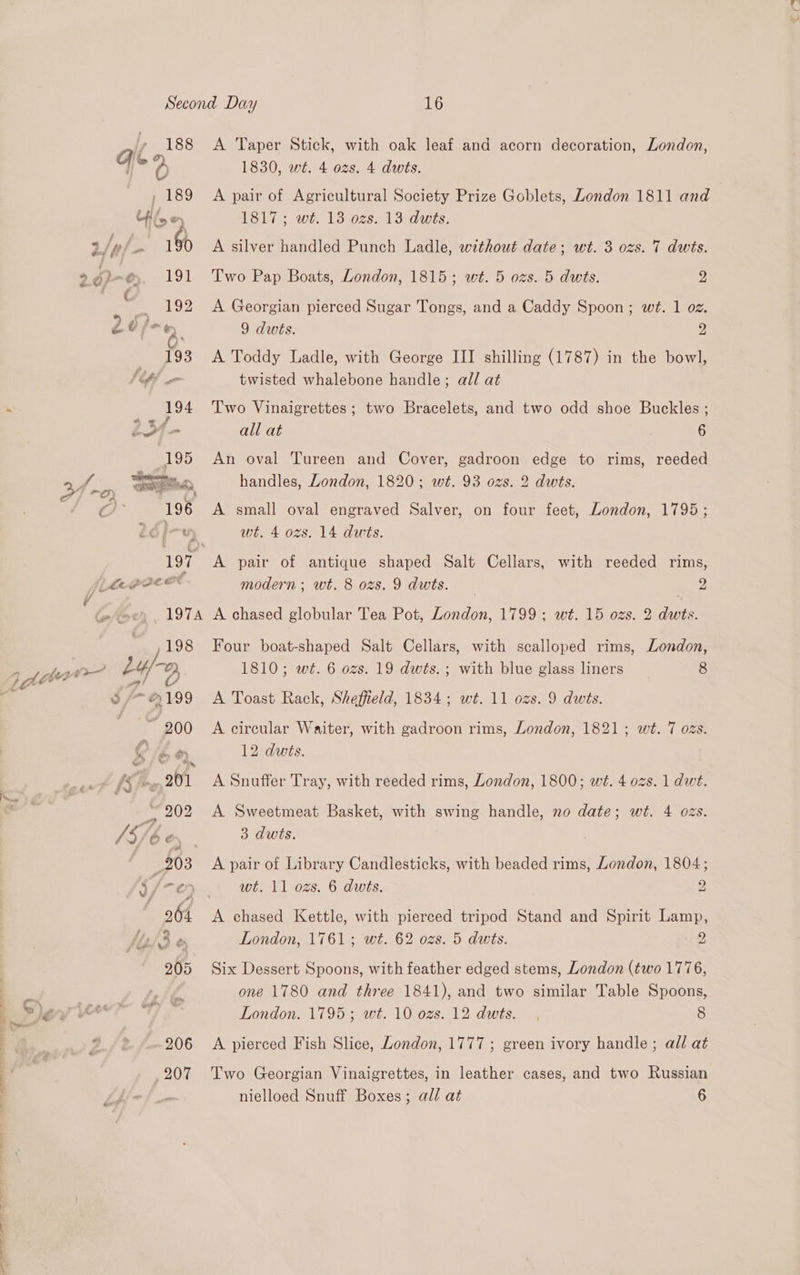 Second Day 16
188 A Taper Stick, with oak leaf and acorn decoration, London,
1830, wt. 4 ozs. 4 dwts.
189 A pair of Agricultural Society Prize Goblets, London 1811 and
1817; wt. 13 ozs. 13 dwts.
190 A silver handled Punch Ladle, without date; wt. 3 ozs. 7 dwts.
191 Two Pap Boats, London, 1815; wt. 5 ozs. 5 dwts. 2
192 A Georgian pierced Sugar Tongs, and a Caddy Spoon; wt. 1 oz.
9 dwts. 2
193 A Toddy Ladle, with George III shilling (1787) in the bowl,
twisted whalebone handle; all at
194 Two Vinaigrettes; two Bracelets, and two odd shoe Buckles;
all at 6
195 An oval Tureen and Cover, gadroon edge to rims, reeded
handles, London, 1820; wt. 93 ozs. 2 dwts.
196 A small oval engraved Salver, on four feet, London, 1795;
wt. 4 ozs. 14 dwts.
197 A pair of antique shaped Salt Cellars, with reeded rims,
modern; wt. 8 ozs. 9 dwts. 2
197A A chased globular Tea Pot, London, 1799; wt. 15 ozs. 2 dwts.
198 Four boat-shaped Salt Cellars, with scalloped rims, London,
1810; wt. 6 ozs. 19 dwts.; with blue glass liners 8
199 A Toast Rack, Sheffield, 1834; wt. 11 ozs. 9 dwts.
200 A circular Waiter, with gadroon rims, London, 1821; wt. 7 ozs.
12 dwts.
201 A Snuffer Tray, with reeded rims, London, 1800; wt. 4 ozs. 1 dwt.
202 A Sweetmeat Basket, with swing handle, no date; wt. 4 ozs.
3 dwts.
203 A pair of Library Candlesticks, with beaded rims, London, 1804;
wt. 11 ozs. 6 dwts. 2
204 A chased Kettle, with pierced tripod Stand and Spirit Lamp,
London, 1761; wt. 62 ozs. 5 dwts. 2
205 Six Dessert Spoons, with feather edged stems, London (two 1776,
one 1780 and three 1841), and two similar Table Spoons,
London. 1795; wt. 10 ozs. 12 dwts. 8
206 A pierced Fish Slice, London, 1777; green ivory handle; all at
207 Two Georgian Vinaigrettes, in leather cases, and two Russian
nielloed Snuff Boxes; all at 6